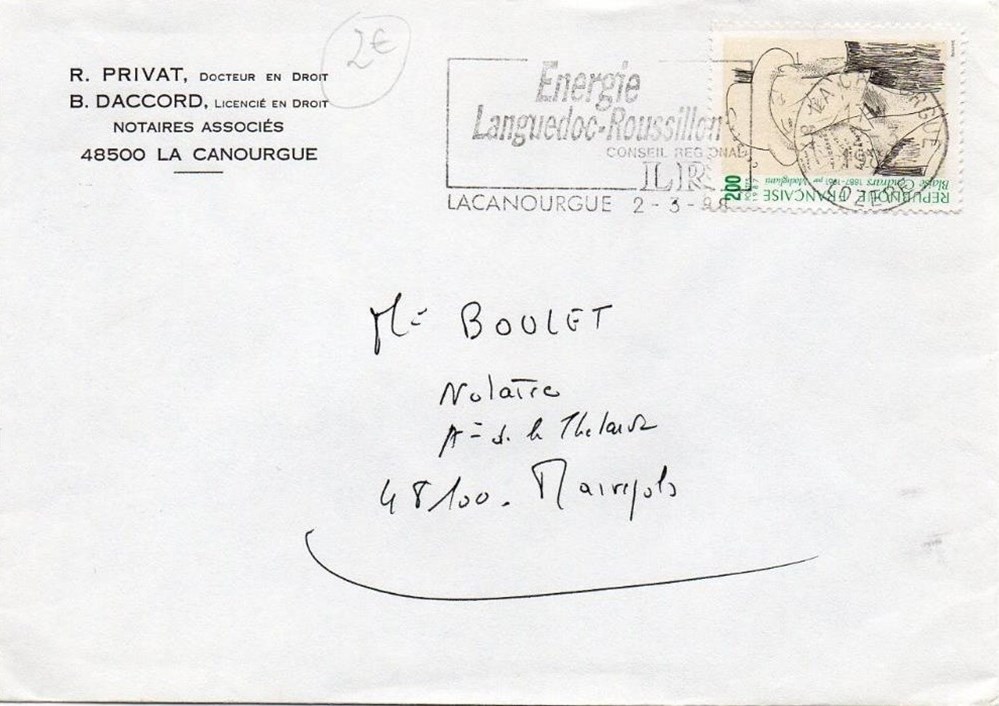 2€
R. PRIVAT, DOCTEUR EN DROIT
B. DACCORD, LICENCIÉ EN DROIT
NOTAIRES ASSOCIÉS
48500 LA CANOURGUE
Energie
Languedoc-Roussillon
CONSEIL REGIONAL
LR
LACANOURGUE 2-3-98
LA CANOURGUE
LOZERE
2,00
Blaise Cendrars 1887-1961 par Modigliani
REPUBLIQUE FRANÇAISE
Me BOULET
Notaire
48100. Marvejols